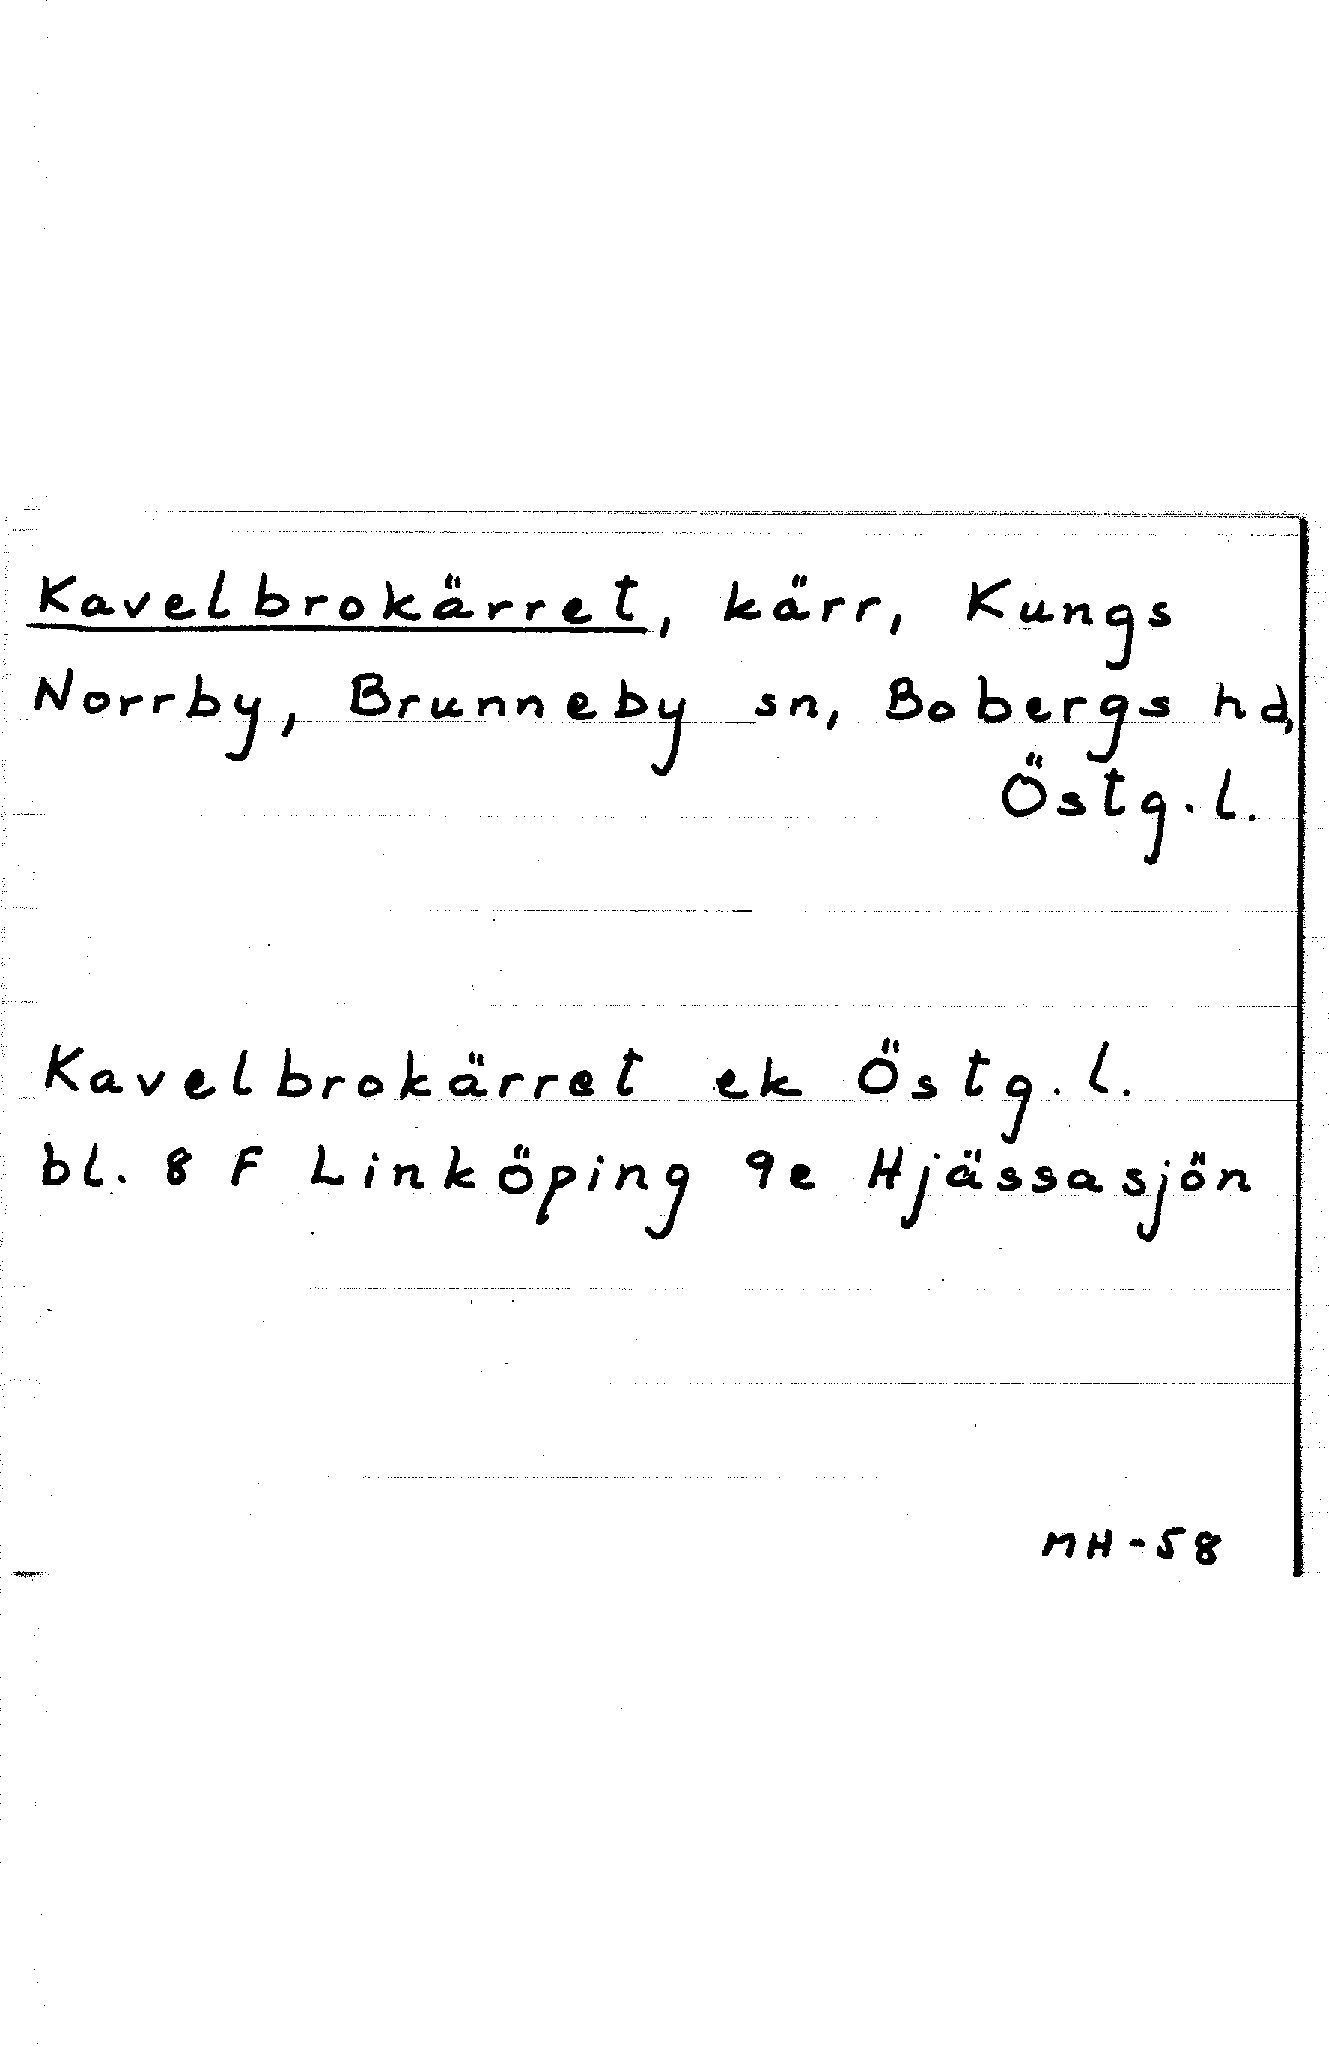 Kavelbrokärret, kärr, Kungs
Norrby, Brunneby sn, Bobergs hd,
Östg.l.
Kavelbrokärret ek Östg.l.
bl. 8 F Linköping 9e Hjässasjön
MH-58